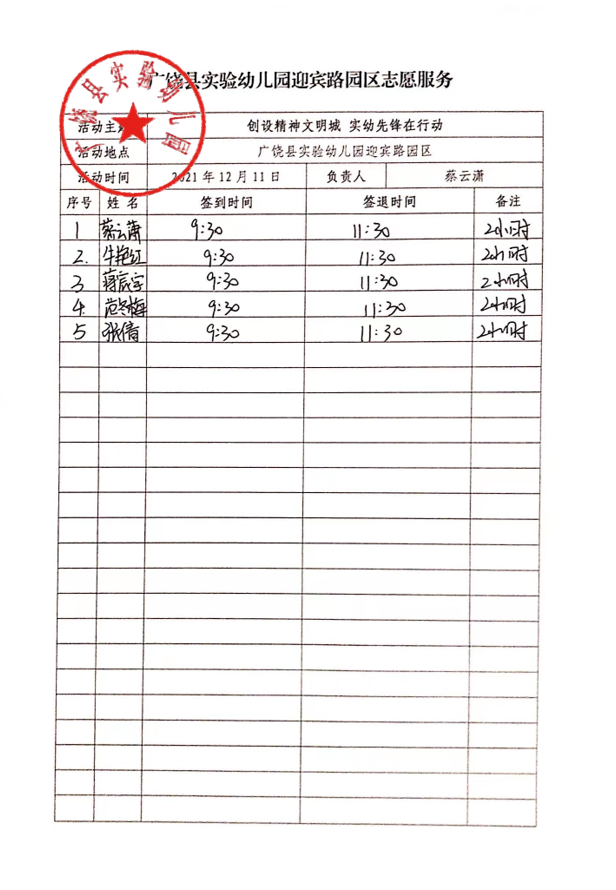 广饶县实验幼儿园迎宾路园区志愿服务
广饶县实验幼儿园
活动主题 创设精神文明城 实幼先锋在行动
活动地点 广饶县实验幼儿园迎宾路园区
活动时间 2021年12月11日 负责人 蔡云潇
序号 姓名 签到时间 签退时间 备注
1 蔡云潇 9:30 11:30 2小时
2. 牛艳红 9:30 11:30 2小时
3 蒋宸宇 9:30 11:30 2小时
4. 范冬梅 9:30 11:30 2小时
5 张倩 9:30 11:30 2小时